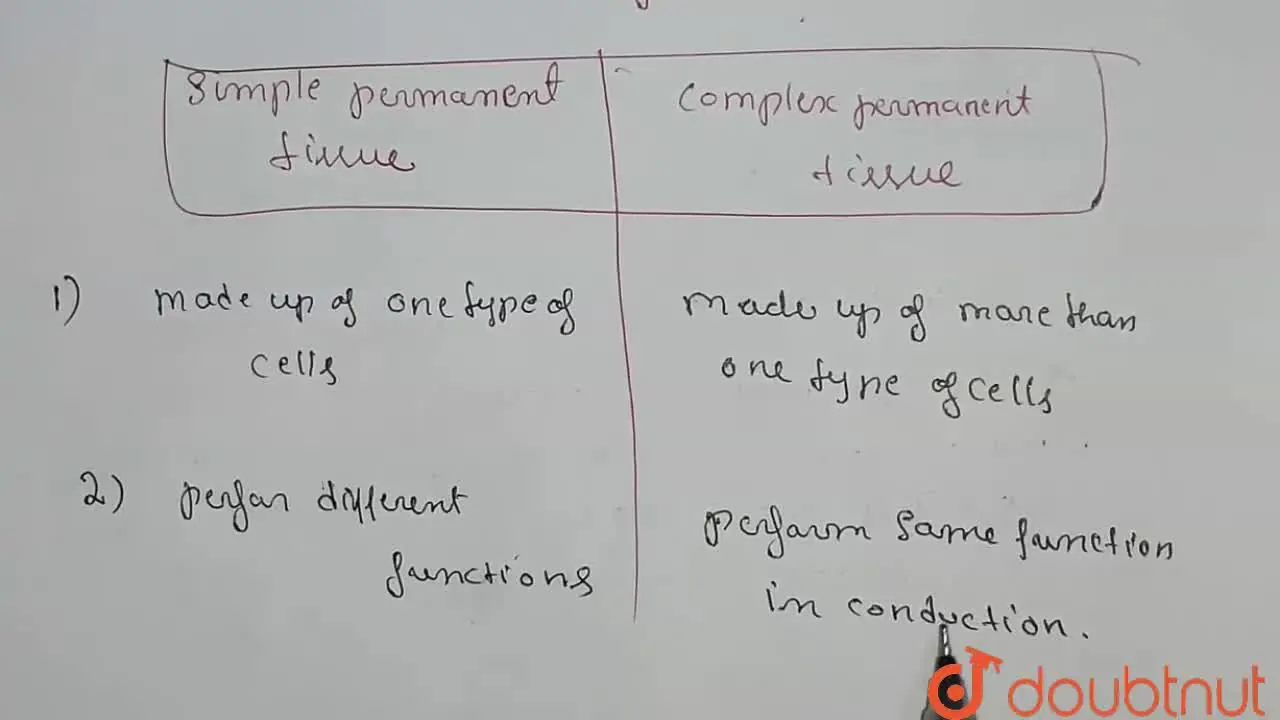 Simple permanent
tissue
Complex permanent
tissue
1) made up of one type of
cells
made up of more than
one type of cells
2) perfor different
functions
perform same function
in conduction.
doubtnut